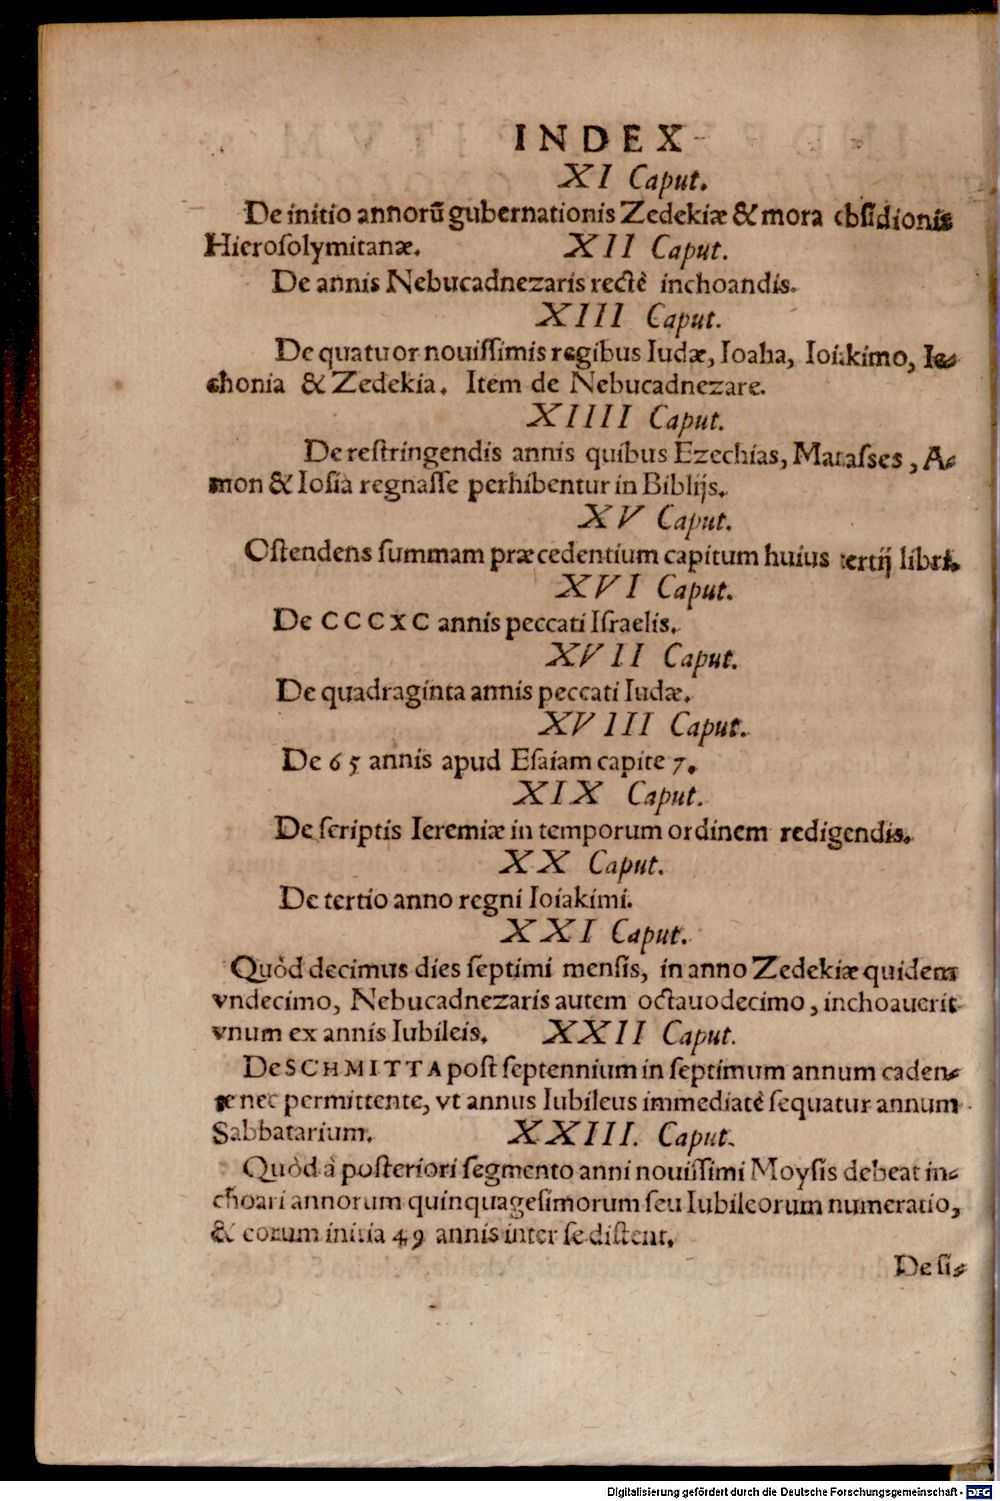 INDEX
XI Caput.
De initio annorū gubernationis Zedekiæ & mora obsidionis
Hierosolymitanæ. XII Caput.
De annis Nebucadnezaris rectè inchoandis.
XIII Caput.
De quatuor nouissimis regibus Iudæ, Ioaha, Ioiakimo, Ie-
chonia & Zedekia. Item de Nebucadnezare.
XIIII Caput.
De restringendis annis quibus Ezechias, Manasses, A-
mon & Iosia regnasse perhibentur in Biblijs.
XV Caput.
Ostendens summam præcedentium capitum huius tertij libri.
XVI Caput.
De CCCXC annis peccati Israelis.
XVII Caput.
De quadraginta annis peccati Iudæ.
XVIII Caput.
De 65 annis apud Esaiam capite 7.
XIX Caput.
De scriptis Ieremiæ in temporum ordinem redigendis.
XX Caput.
De tertio anno regni Ioiakimi.
XXI Caput.
Quòd decimus dies septimi mensis, in anno Zedekiæ quidem
vndecimo, Nebucadnezaris autem octauodecimo, inchoauerit
vnum ex annis Iubileis. XXII Caput.
De SCHMITTA post septennium in septimum annum caden-
te nec permittente, vt annus Iubileus immediatè sequatur annum
Sabbatarium. XXIII. Caput.
Quòd à posteriori segmento anni nouissimi Moysis debeat in-
choari annorum quinquagesimorum seu Iubileorum numeratio,
& eorum initia 49 annis inter se distent.
De si-
Digitalisierung gefördert durch die Deutsche Forschungsgemeinschaft - DFG